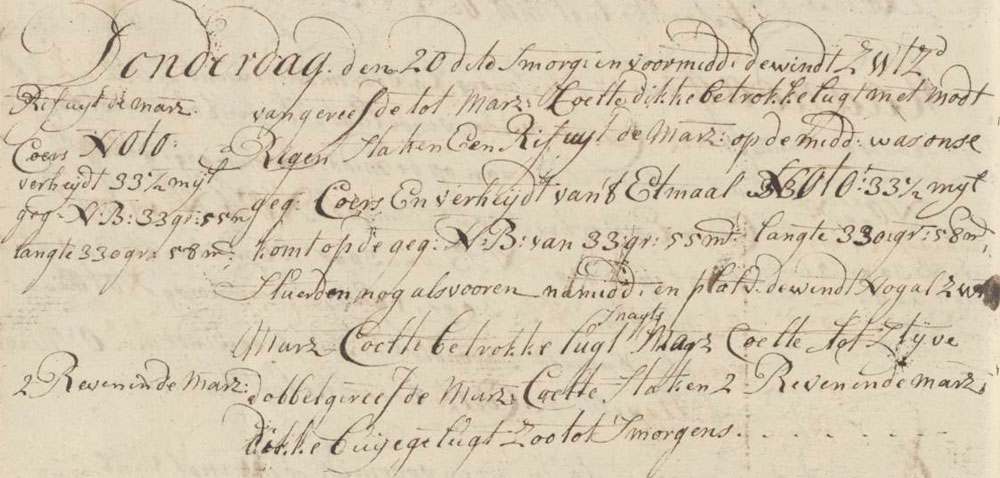 Donderdag. den 20 dito Smorg: en voormidd: de windt ZWtZ
Rif uyt de marz.
van gereefde tot Marz: Coette dikke betrokke lugt met modt
Regen staken Een Rif uyt de Marz: op de midd: was onse
Coers NOtO:
verheydt 33½ myl
geg: Coers En verheydt van't Etmaal NOtO: 33½ myl
geg: N:B: 33 gr: 55 m
komt op de geg: N:B: van 33: gr: 55 mt: langte 330: gr: 58 m,
langte 330 gr: 58 m,
stuerden nog als vooren namidd: en platv. de windt Nog al ZW
Marz Coette betrokke lugt Snagts Marz Coette tot Styve
2 Reven in de Marz:
dobbel gereefde Marz: Coette staken 2 Reven in de marz
dikke buyege lugt Zoo tot Smorgens . . . . . .